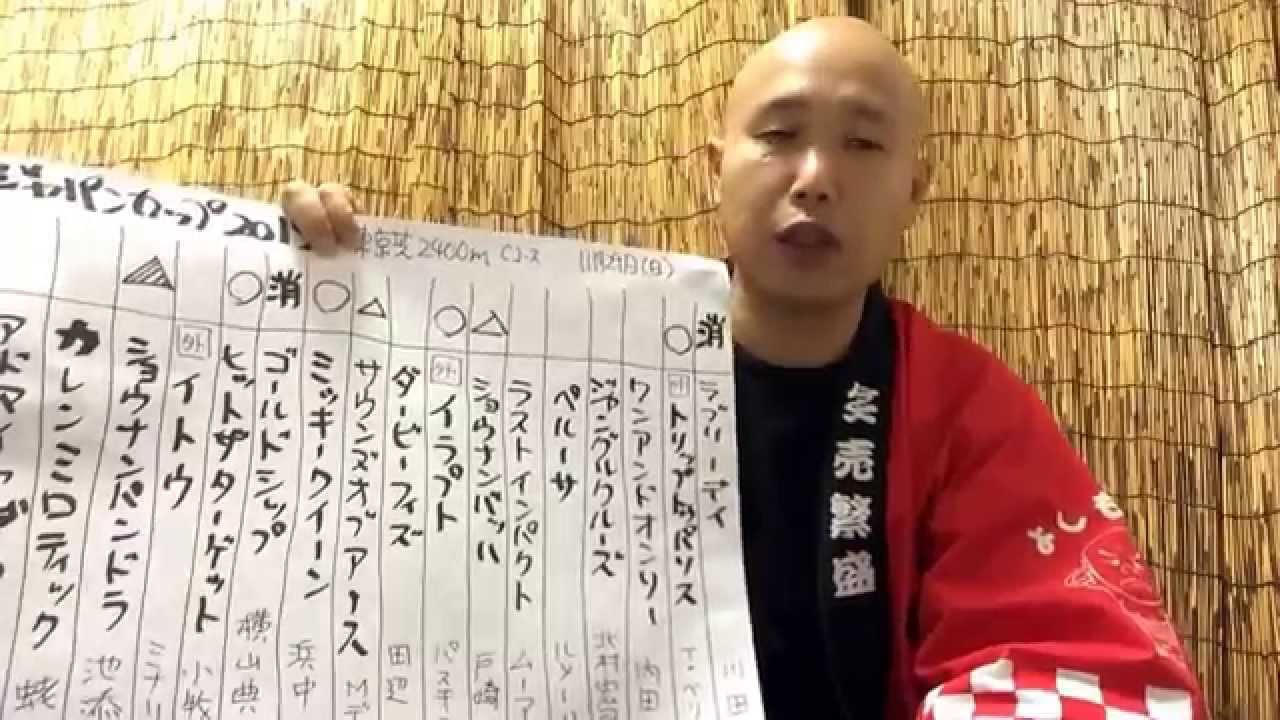 ジャパンカップ201
東京芝2400m Cコース 11月29日(日)
消 ラブリーデイ 川田
○ 外 トリップトゥパリス T・ベリ
ワンアンドオンリー 内田
ジャングルクルーズ 北村宏司
ペルーサ ルメール
ラストインパクト ムーア
△ ショウナンバッハ 戸崎
○ 外 イラプト パスキ
ダービーフィズ 田辺
△ サウンズオブアース Mデ
○ ミッキークイーン 浜中
消 ゴールドシップ 横山典
○ ヒットザターゲット 小牧
外 イトウ ミナリ
▲ ショウナンパンドラ 池添
カレンミロティック 蛯
アドマイ
売繁盛